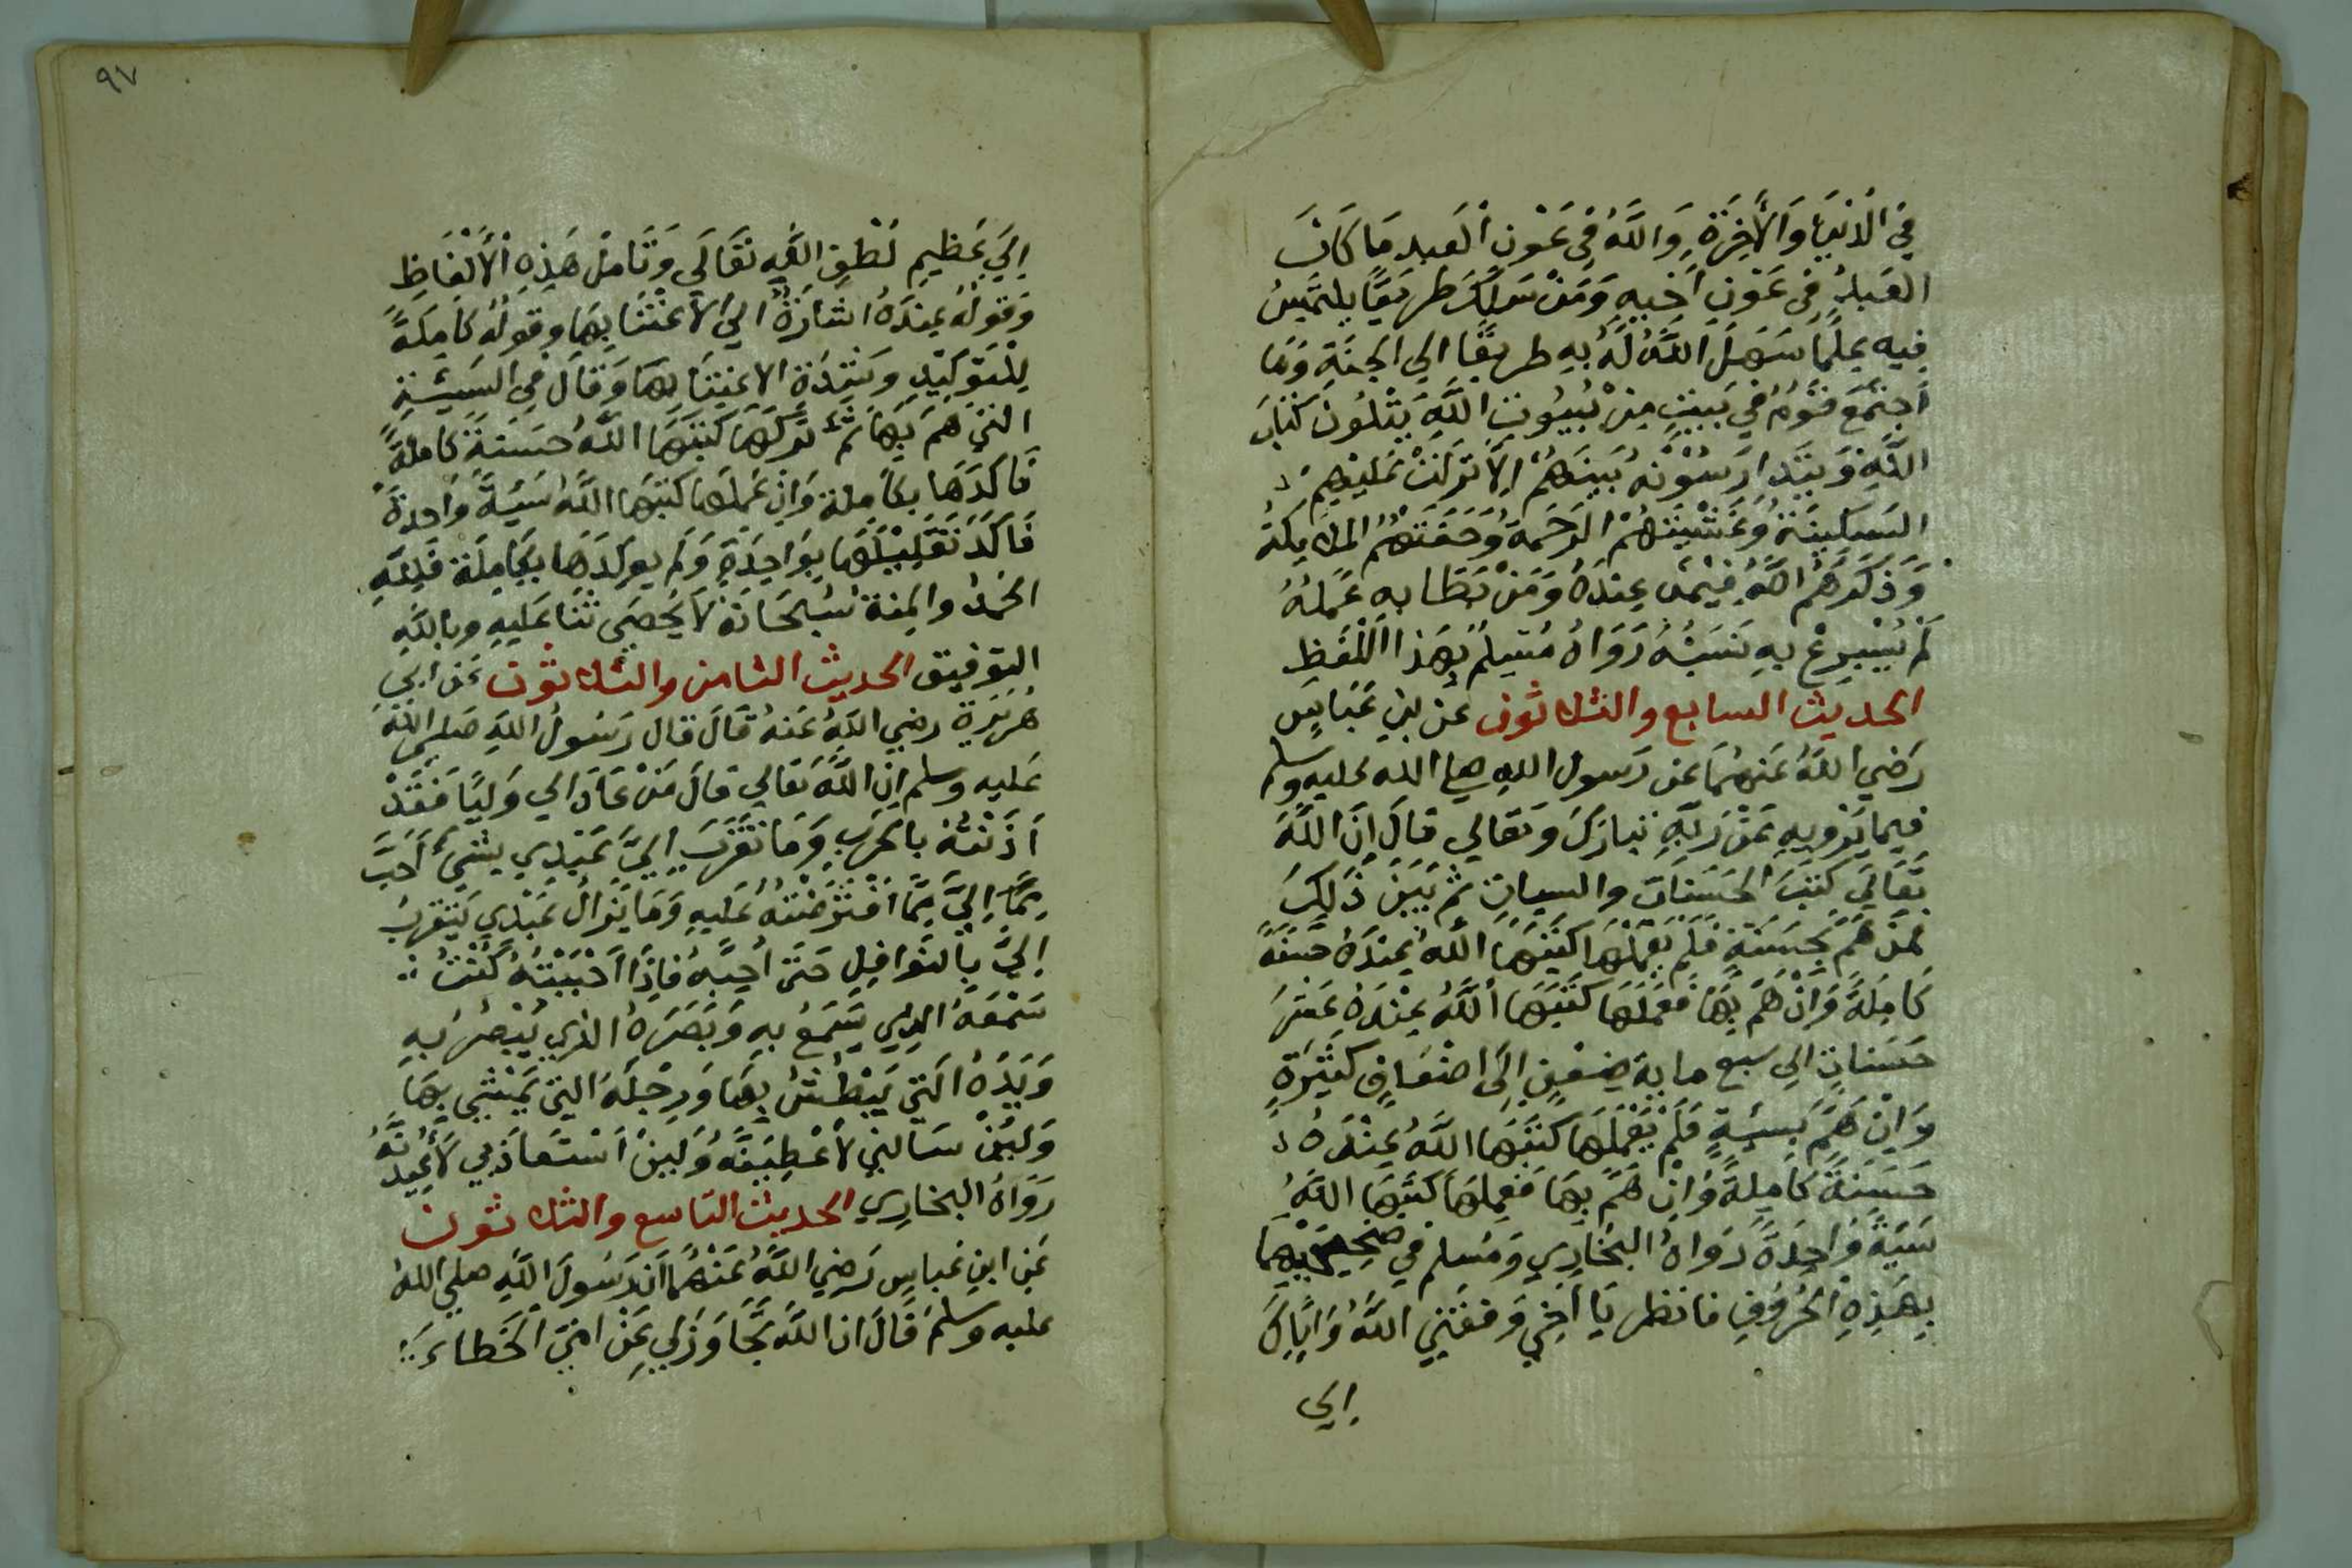 في الدنيا والأخرة والله في عون العبد ما كان
العبد في عون اخيه ومن سلك طريقا يلتمس
فيه علما سهل الله له به طريقا الي الجنة وما
اجتمع قوم في بيت من بيوت الله يتلون كتاب
الله ويتدارسونه بينهم الا نزلت عليهم
السكينة وغشيتهم الرحمة وحفتهم الملايكة
وذكرهم الله فيمن عنده ومن بطا به عمله
لم يسرع به نسبه رواه مسلم بهذا اللفظ
الحديث السابع والثلاثون عن بن عباس
رضي الله عنهما عن رسول الله صلي الله عليه وسلم
فيما يرويه عن ربه تبارك وتعالي قال ان الله
تعالي كتب الحسنات والسيات ثم بين ذلك
فمن هم بحسنة فلم يعملها كتبها الله عنده حسنة
كاملة وان هم بها فعملها كتبها الله عنده عشر
حسنات الي سبع ماية ضعف الي اضعاف كثيرة
وان هم بسيئة فلم يعملها كتبها الله عنده
حسنة كاملة وان هم بها فعملها كتبها الله
سيئة واحدة رواه البخاري ومسلم في صحيحيهما
بهذه الحروف فانظر يا اخي وفقني الله واياك
الي
٩٧
الي عظيم لطف الله تعالي وتامل هذه الألفاظ
وقوله عنده اشارة الي الاعتنا بها وقوله كاملة
للتوكيد وشدة الاعتنا بها وقال في السيئة
التي هم بها ثم تركها كتبها الله حسنة كاملة
فاكدها بكاملة وان عملها كتبها الله سيئة واحدة
فاكد تقليلها بواحدة ولم يوكدها بكاملة فلله
الحمد والمنة سبحانه لا يحصي ثنا عليه وبالله
التوفيق الحديث الثامن والثلاثون عن ابي
هريرة رضي الله عنه قال قال رسول الله صلي الله
عليه وسلم ان الله تعالي قال من عادا لي وليا فقد
اذنته بالحرب وما تقرب الي عبدي بشيء أحب
مما الي مما افترضته عليه وما يزال عبدي يتقرب
الي بالنوافل حتي أحبه فاذا احببته كنت
سمعه الذي يسمع به وبصره الذي يبصر به
ويده التي يبطش بها ورجله التي يمشي بها
ولين سالني لأعطينه ولين استعاذ بي لأعيذنه
رواه البخاري الحديث التاسع والثلاثون
عن ابن عباس رضي الله عنهما ان رسول الله صلي الله
عليه وسلم قال ان الله تجاوز لي عن امتي الخطاء